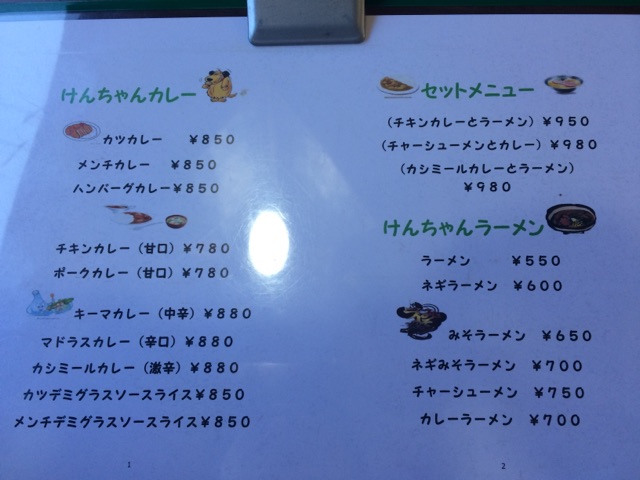 けんちゃんカレー
カツカレー ￥８５０
メンチカレー ￥８５０
ハンバーグカレー￥８５０
チキンカレー（甘口）￥７８０
ポークカレー（甘口）￥７８０
キーマカレー（中辛）￥８８０
マドラスカレー（辛口）￥８８０
カシミールカレー（激辛）￥８８０
カツデミグラスソースライス￥８５０
メンチデミグラスソースライス￥８５０
1
セットメニュー
（チキンカレーとラーメン）￥９５０
（チャーシューメンとカレー）￥９８０
（カシミールカレーとラーメン）
￥９８０
けんちゃんラーメン
ラーメン ￥５５０
ネギラーメン ￥６００
みそラーメン ￥６５０
ネギみそラーメン ￥７００
チャーシューメン ￥７５０
カレーラーメン ￥７００
2